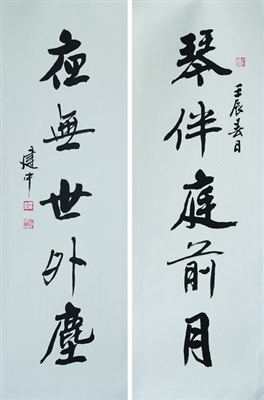 琴伴庭前月
壬辰春日
夜無世外塵
建中